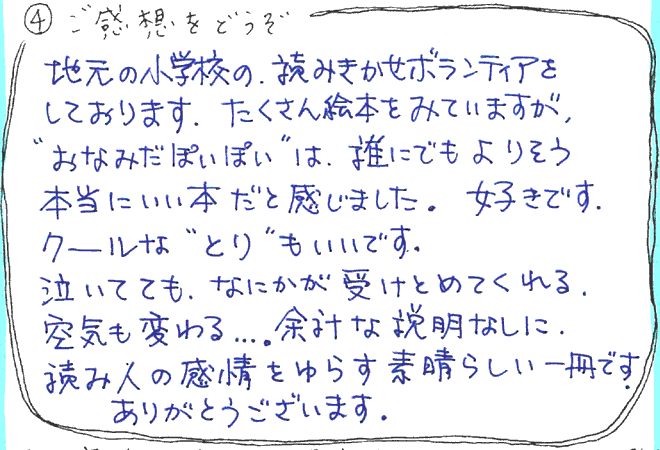 ④ ご感想をどうぞ
地元の小学校の、読みきかせボランティアを
しております。たくさん絵本をみていますが、
"おなみだぽいぽい"は、誰にでもよりそう
本当にいい本だと感じました。好きです。
クールな"とり"もいいです。
泣いてても、なにかが受けとめてくれる。
空気も変わる....。余計な説明なしに、
読み人の感情をゆらす素晴らしい一冊です。
ありがとうございます。